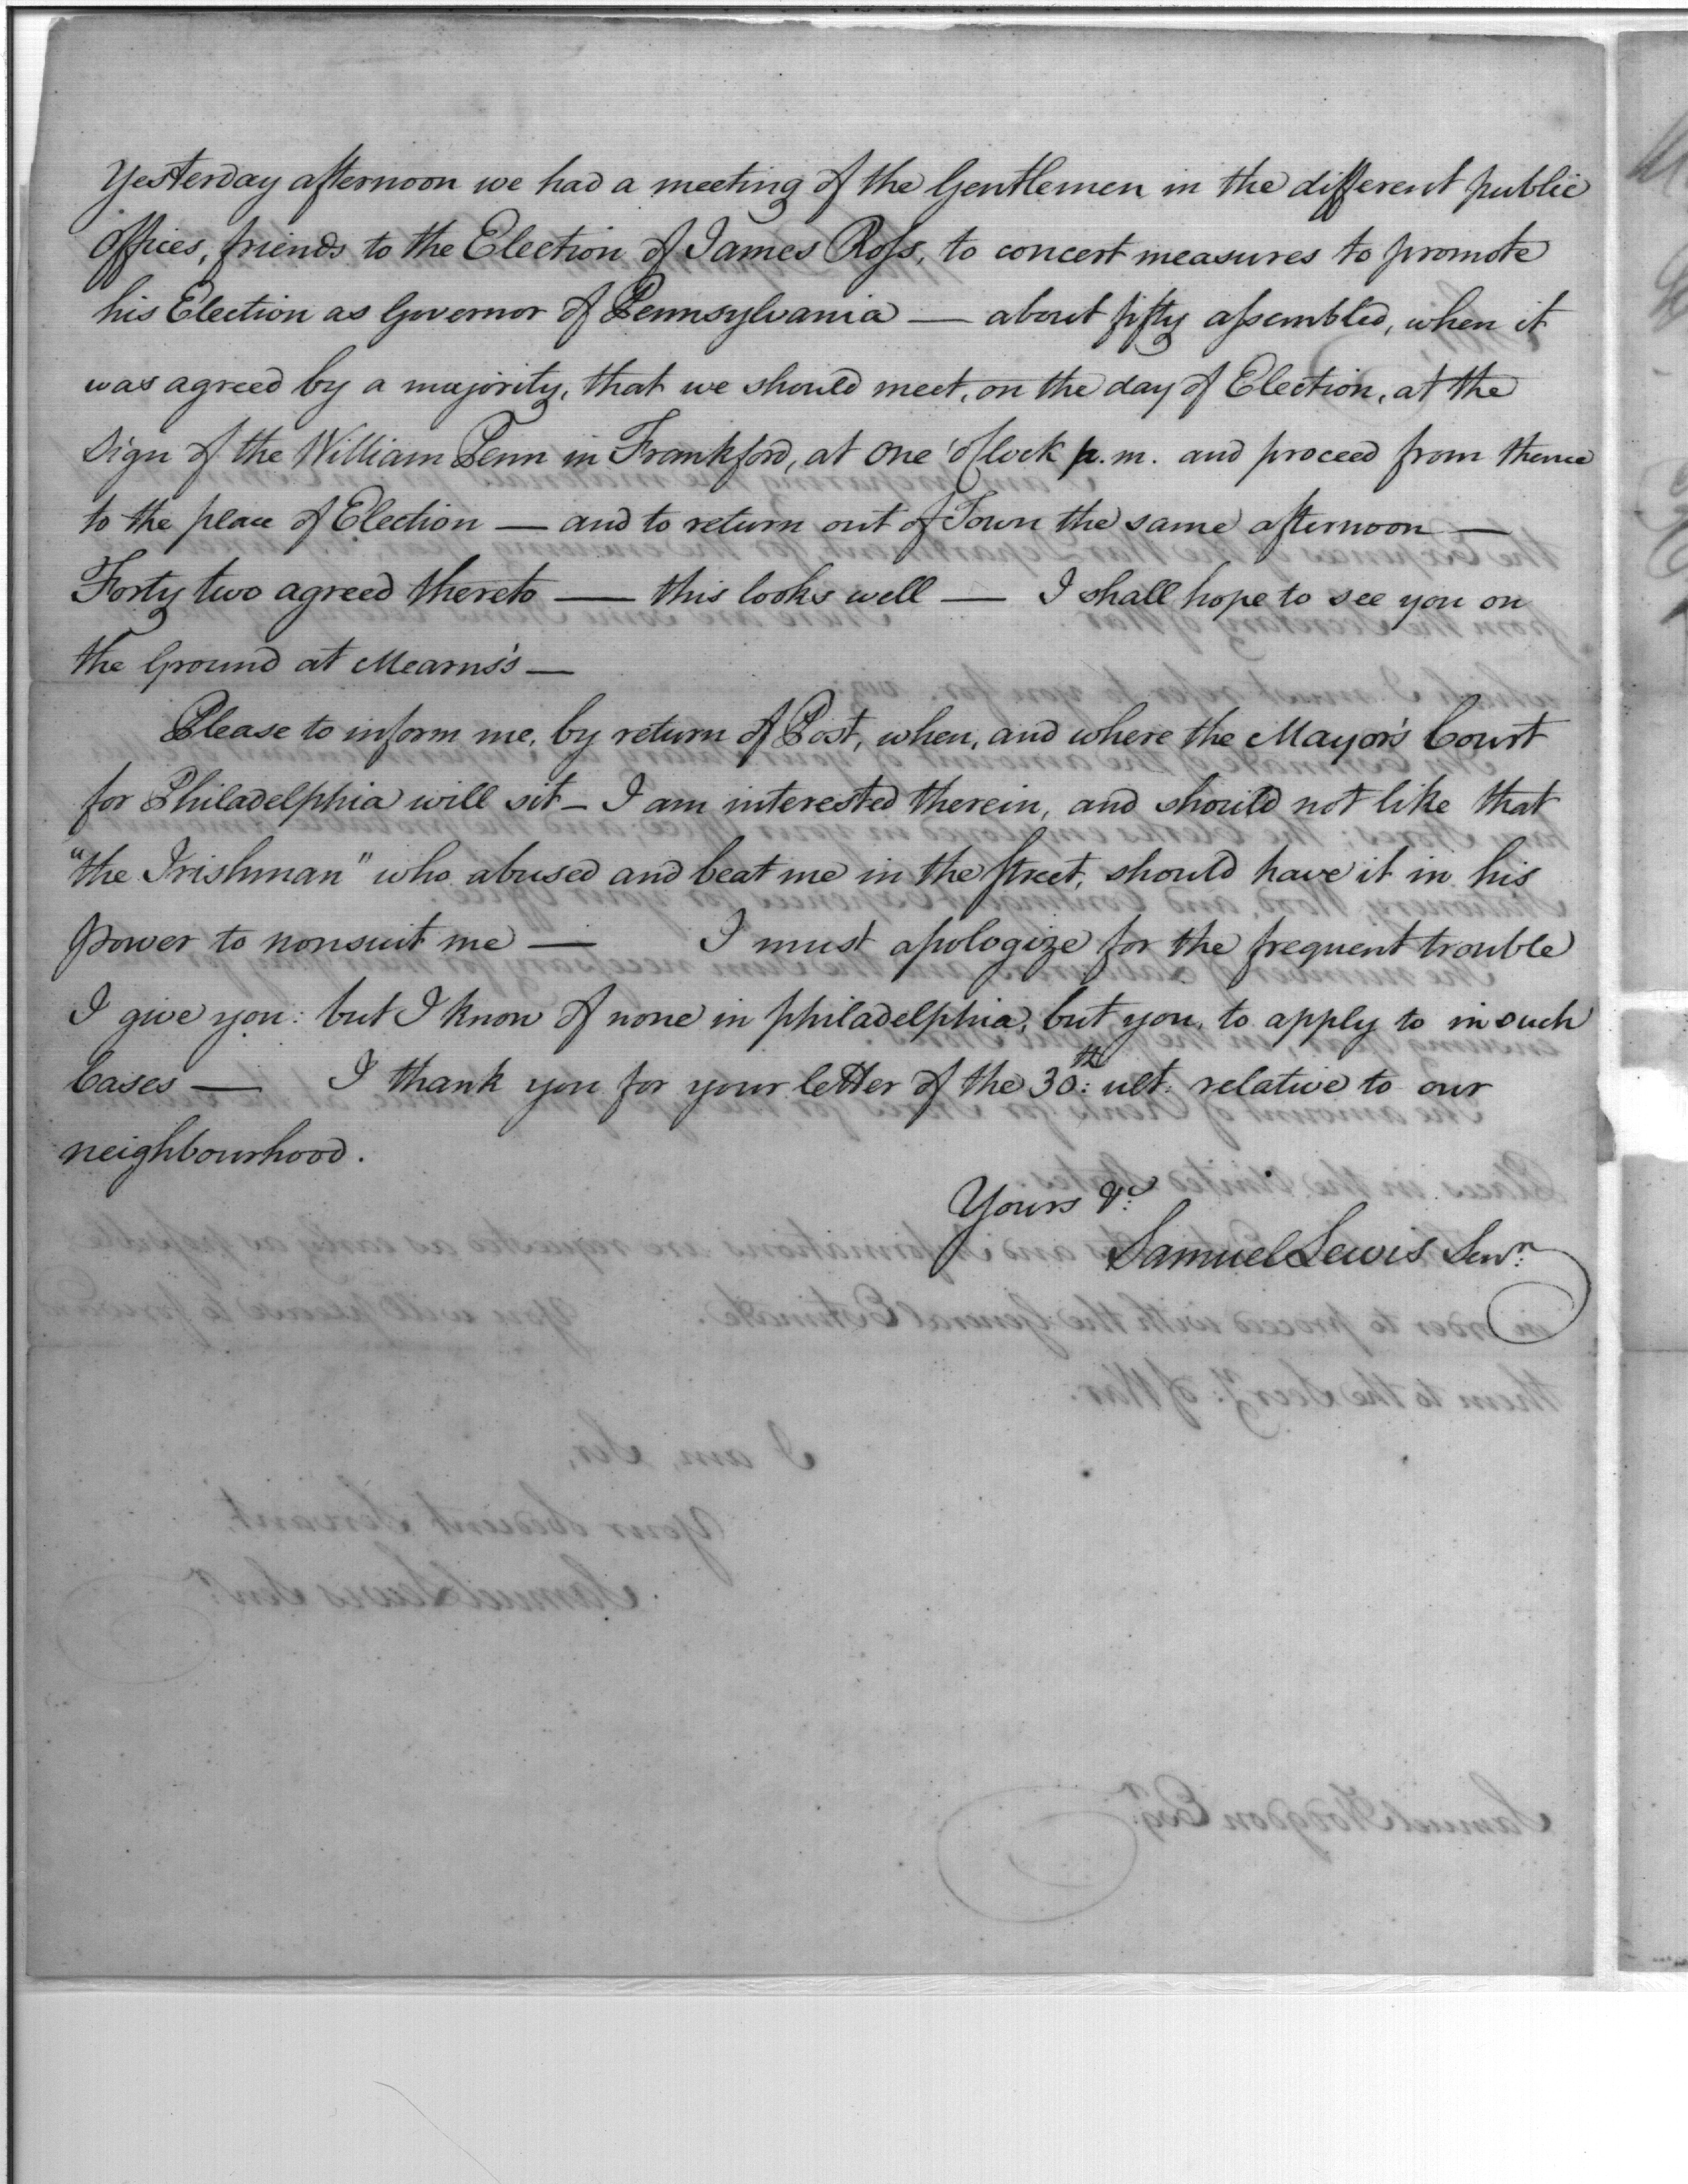 Yesterday afternoon we had a meeting of the Gentlemen in the different public
Offices, friends to the Election of James Ross, to concert measures to promote
his Election as Governor of Pennsylvania — about fifty assembled, when it
was agreed by a majority, that we should meet, on the day of Election, at the
Sign of the William Penn in Frankford, at One 'oClock p.m. and proceed from thence
to the place of Election — and to return out of Town the same afternoon —
Forty two agreed thereto — this looks well — I shall hope to see you on
the Ground at Mearns's —
Please to inform me, by return of Post, when, and where the Mayor's Court
for Philadelphia will sit — I am interested therein, and should not like that
"the Irishman" who abused and beat me in the Street, should have it in his
power to nonsuit me — I must apologize for the frequent trouble
I give you: but I know of none in philadelphia, but you, to apply to in such
Cases — I thank you for your letter of the 30th: ult: relative to our
neighbourhood.
Yours &c:
Samuel Lewis Senr: